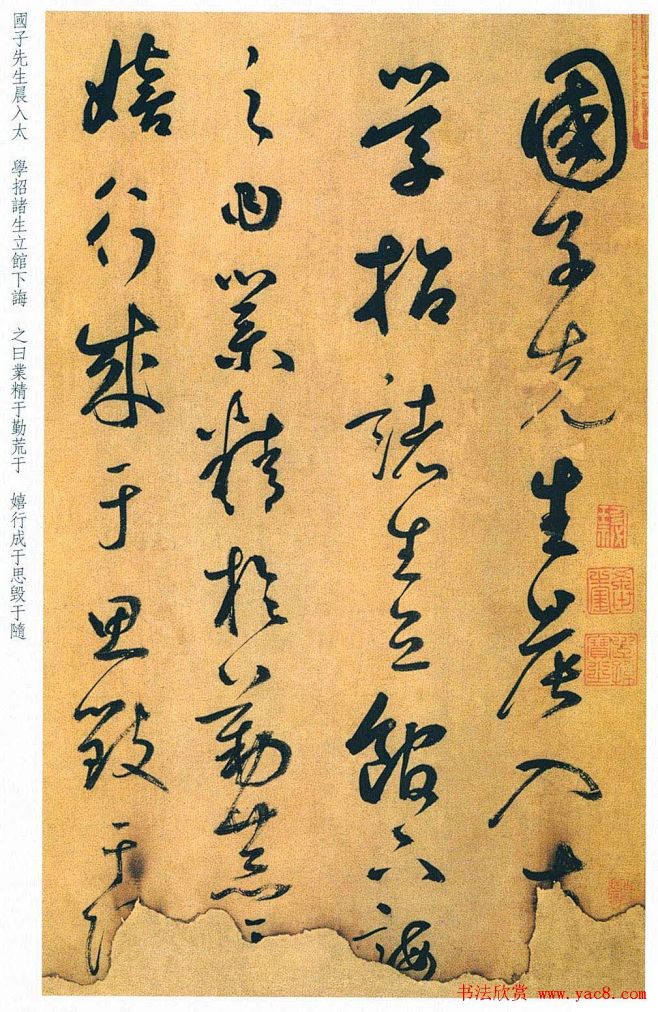 國子先生晨入太
學招諸生立館下誨
之曰業精於勤荒于
嬉行成于思毀于隨
國子先生晨入太 學招諸生立館下誨 之曰業精于勤荒于 嬉行成于思毀于隨
书法欣赏 www.yac8.com